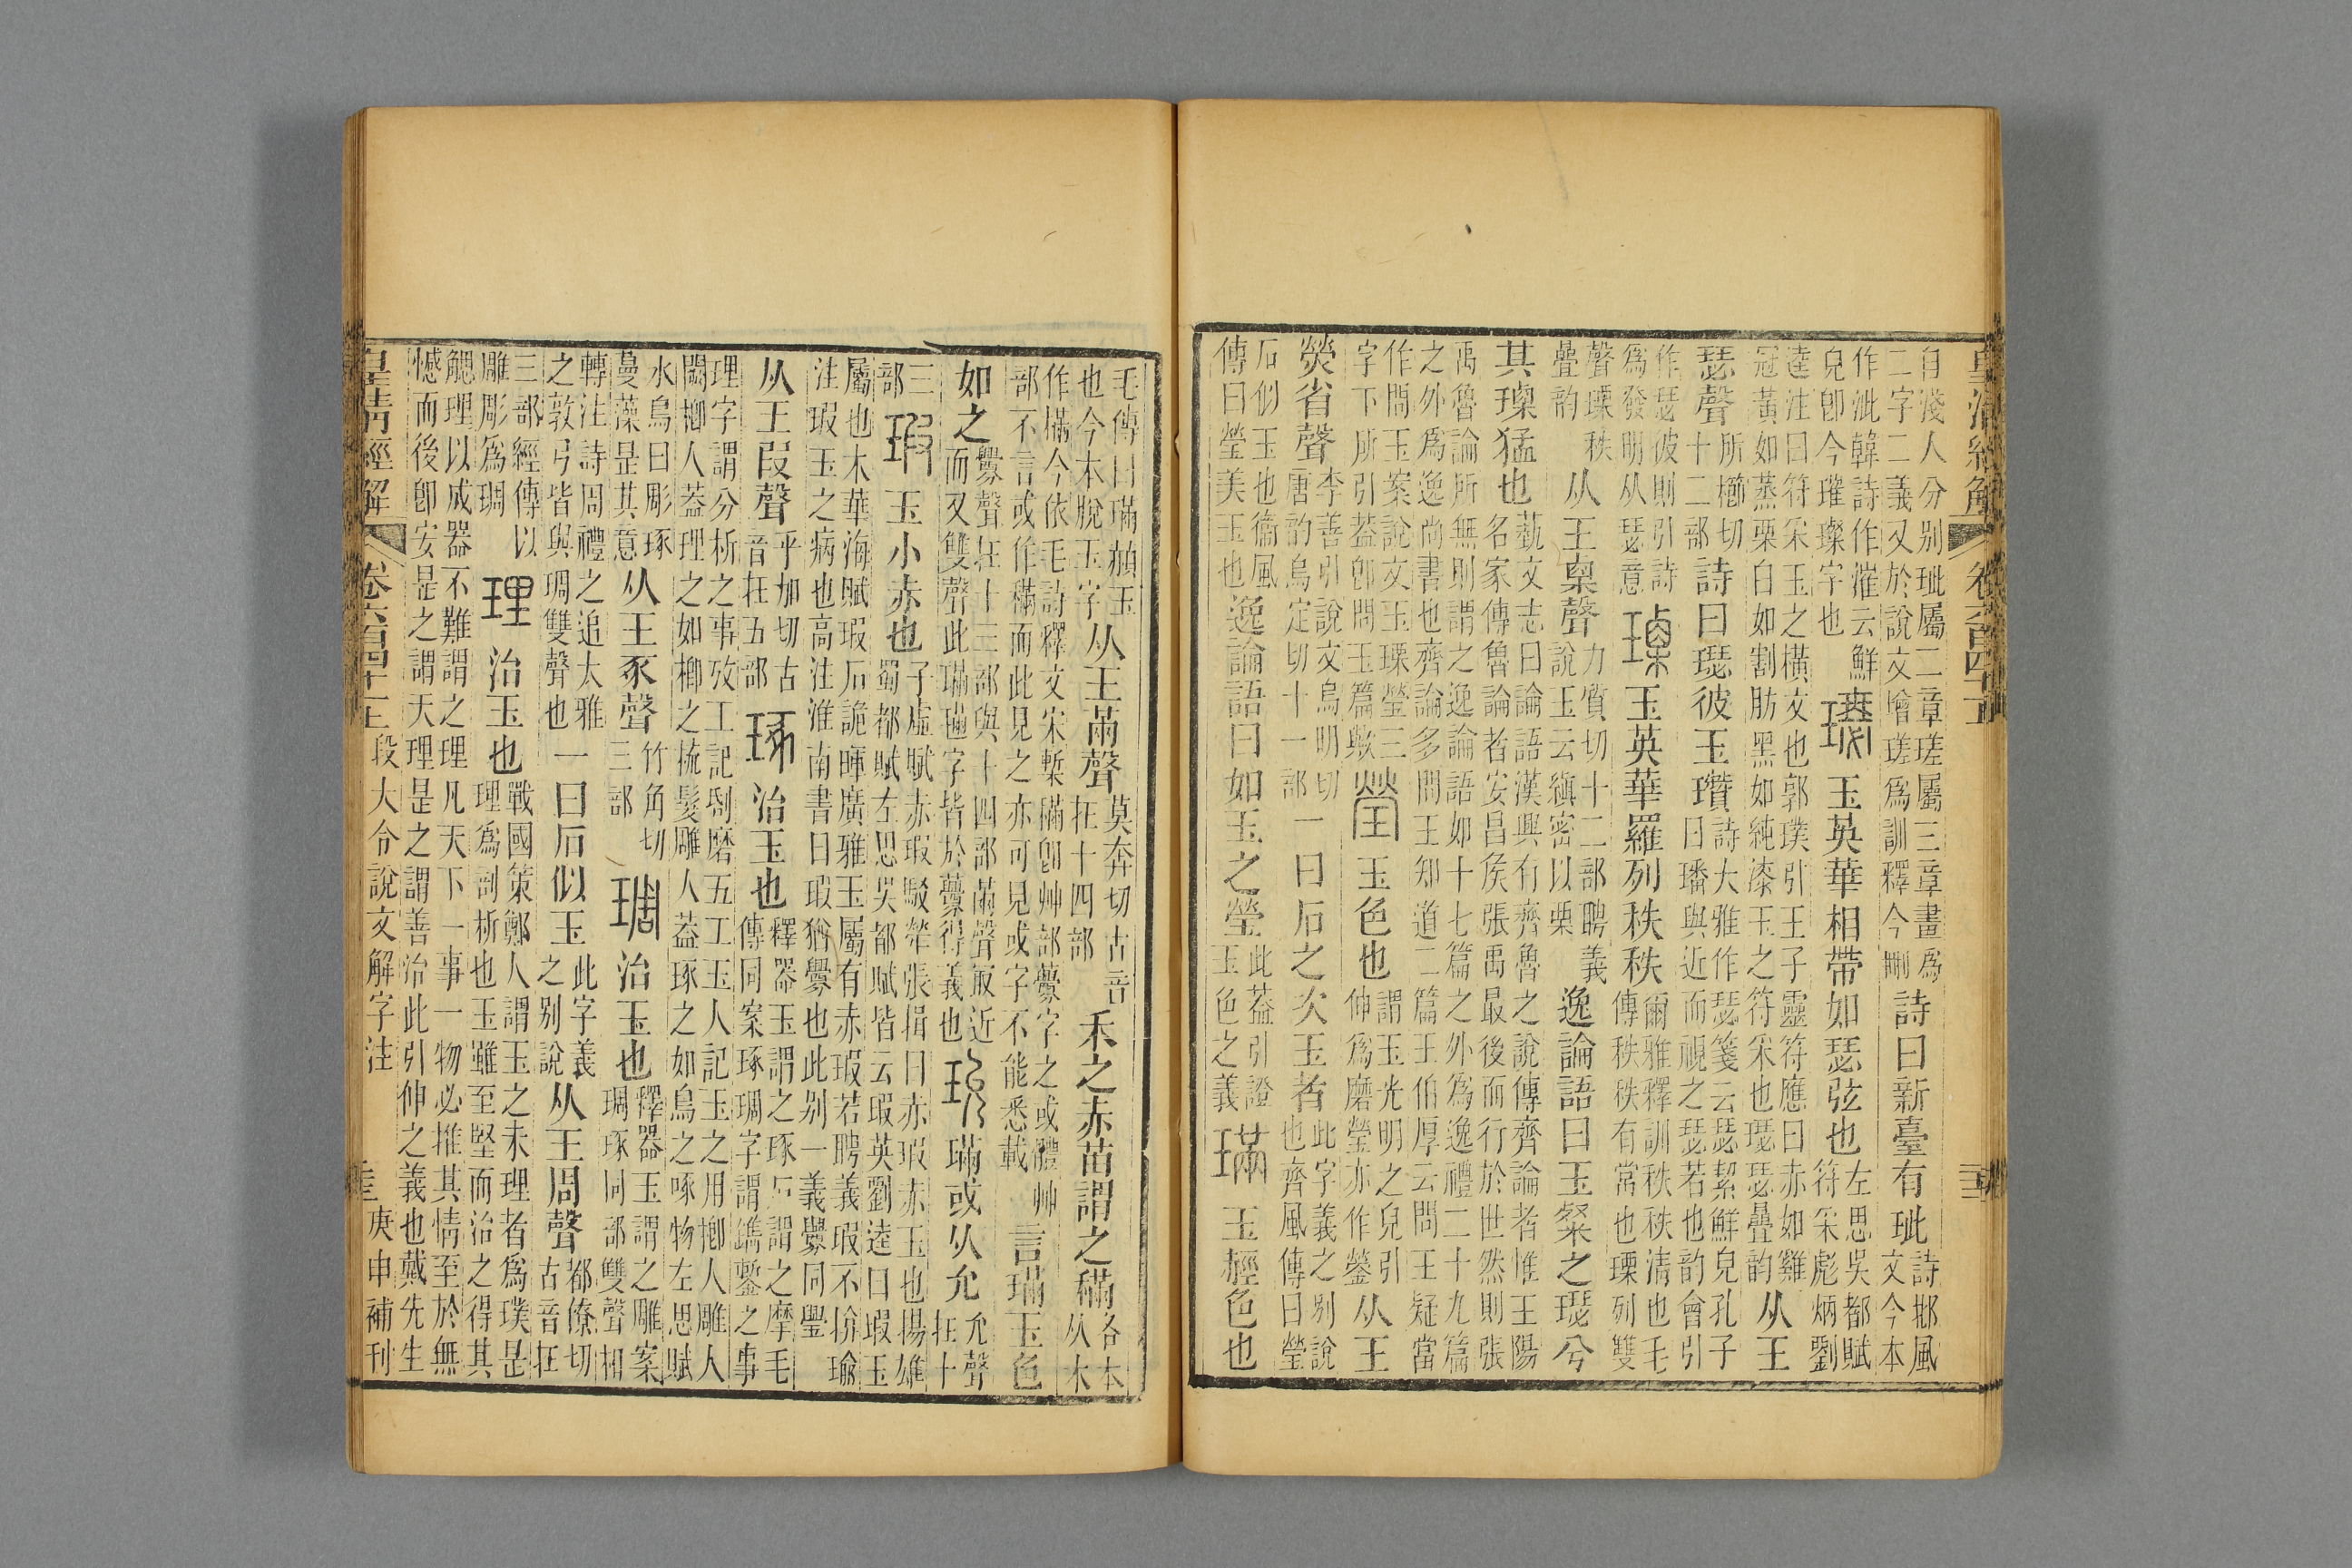 皇清經解 卷六百四十一上
自淺人分別玼屬二章瑳屬三章畫爲二字二義又於說文噲瑳爲訓釋今刪詩曰新臺有玼詩邶風文今本
作泚韓詩作漼云鮮皃卽今璀璨字也璱玉英華相帶如瑟弦也左思吳都賦符采彪炳劉
逵注曰符采玉之橫文也郭璞引王子靈符應曰赤如雞冠黃如蒸栗白如割肪黑如純漆玉之符采也璱瑟曡韵从王
瑟聲所櫛切十二部詩曰璱彼玉瓚詩大雅作瑟箋云瑟絜鮮皃孔子曰璠與近而視之瑟若也韵會引
作瑟彼則引詩爲發明从瑟意瑮玉英華羅列秩秩爾雅釋訓秩秩清也毛傳秩秩有常也瑮列雙
聲瑮秩曡韵从王㮚聲力質切十二部聘義說玉云縝密以栗逸論語曰玉粲之璱兮
其瑮猛也藝文志曰論語漢興有齊魯之說傳齊論者惟王陽名家傳魯論者安昌矦張禹最後而行於世然則張
禹魯論所無則謂之逸論語如十七篇之外爲逸禮二十九篇之外爲逸尚書也齊論多問王知道二篇王伯厚云問王疑當
作問玉案說文玉瑮瑩三字下所引葢卽問玉篇歟瑩玉色也謂玉光明之皃引伸爲磨瑩亦作鎣从王
熒省聲李善引說文烏明切唐韵烏定切十一部一曰石之次玉者此字義之別說也齊風傳曰瑩
石似玉也衞風傳曰瑩美玉也逸論語曰如玉之瑩此葢引證玉色之義璊玉䞓色也
毛傳曰璊赬玉也今本脫玉字从王㒼聲莫奔切古音在十四部禾之赤苗謂之䅼各本从木
作樠今依毛詩釋文宋槧䅼卽艸部虋字之或體艸部不言或作䅼而此見之亦可見或字不能悉載言璊玉色
如之釁聲在十三部與十四部㒼聲㝡近而又雙聲此璊䅼字皆於虋得義也玧璊或从允允聲在十
三部瑕玉小赤也子虛賦赤瑕駁犖張揖曰赤瑕赤玉也揚雄蜀都賦左思吳都賦皆云瑕英劉逵曰瑕玉
屬也木華海賦瑕石詭暉廣雅玉屬有赤瑕若聘義瑕不揜瑜注瑕玉之病也高注淮南書曰瑕猶釁也此別一義釁同璺
从王叚聲乎加切古音在五部琢治玉也釋器玉謂之琢石謂之摩毛傳同案琢琱字謂鐫鏨之事
理字謂分析之事攷工記刮磨五工玉人記玉之用楖人雕人闕楖人葢理之如楖之梳髮雕人葢琢之如鳥之啄物左思賦
水鳥曰彫琢蔓藻是其意从王豖聲竹角切三部琱治玉也釋器玉謂之雕案琱琢同部雙聲相
轉注詩周禮之追大雅之敦弓皆與琱雙聲也一曰石似玉此字義之別說从王周聲都僚切古音在
三部經傳以雕彫爲琱理治玉也戰國策鄭人謂玉之未理者爲璞是理爲剖析也玉雖至堅而治之得其
䚡理以成器不難謂之理凡天下一事一物必推其情至於無憾而後卽安是之謂天理是之謂善治此引伸之義也戴先生
皇清經解 卷六百四十一上 段大令說文解字注 庚申補刊